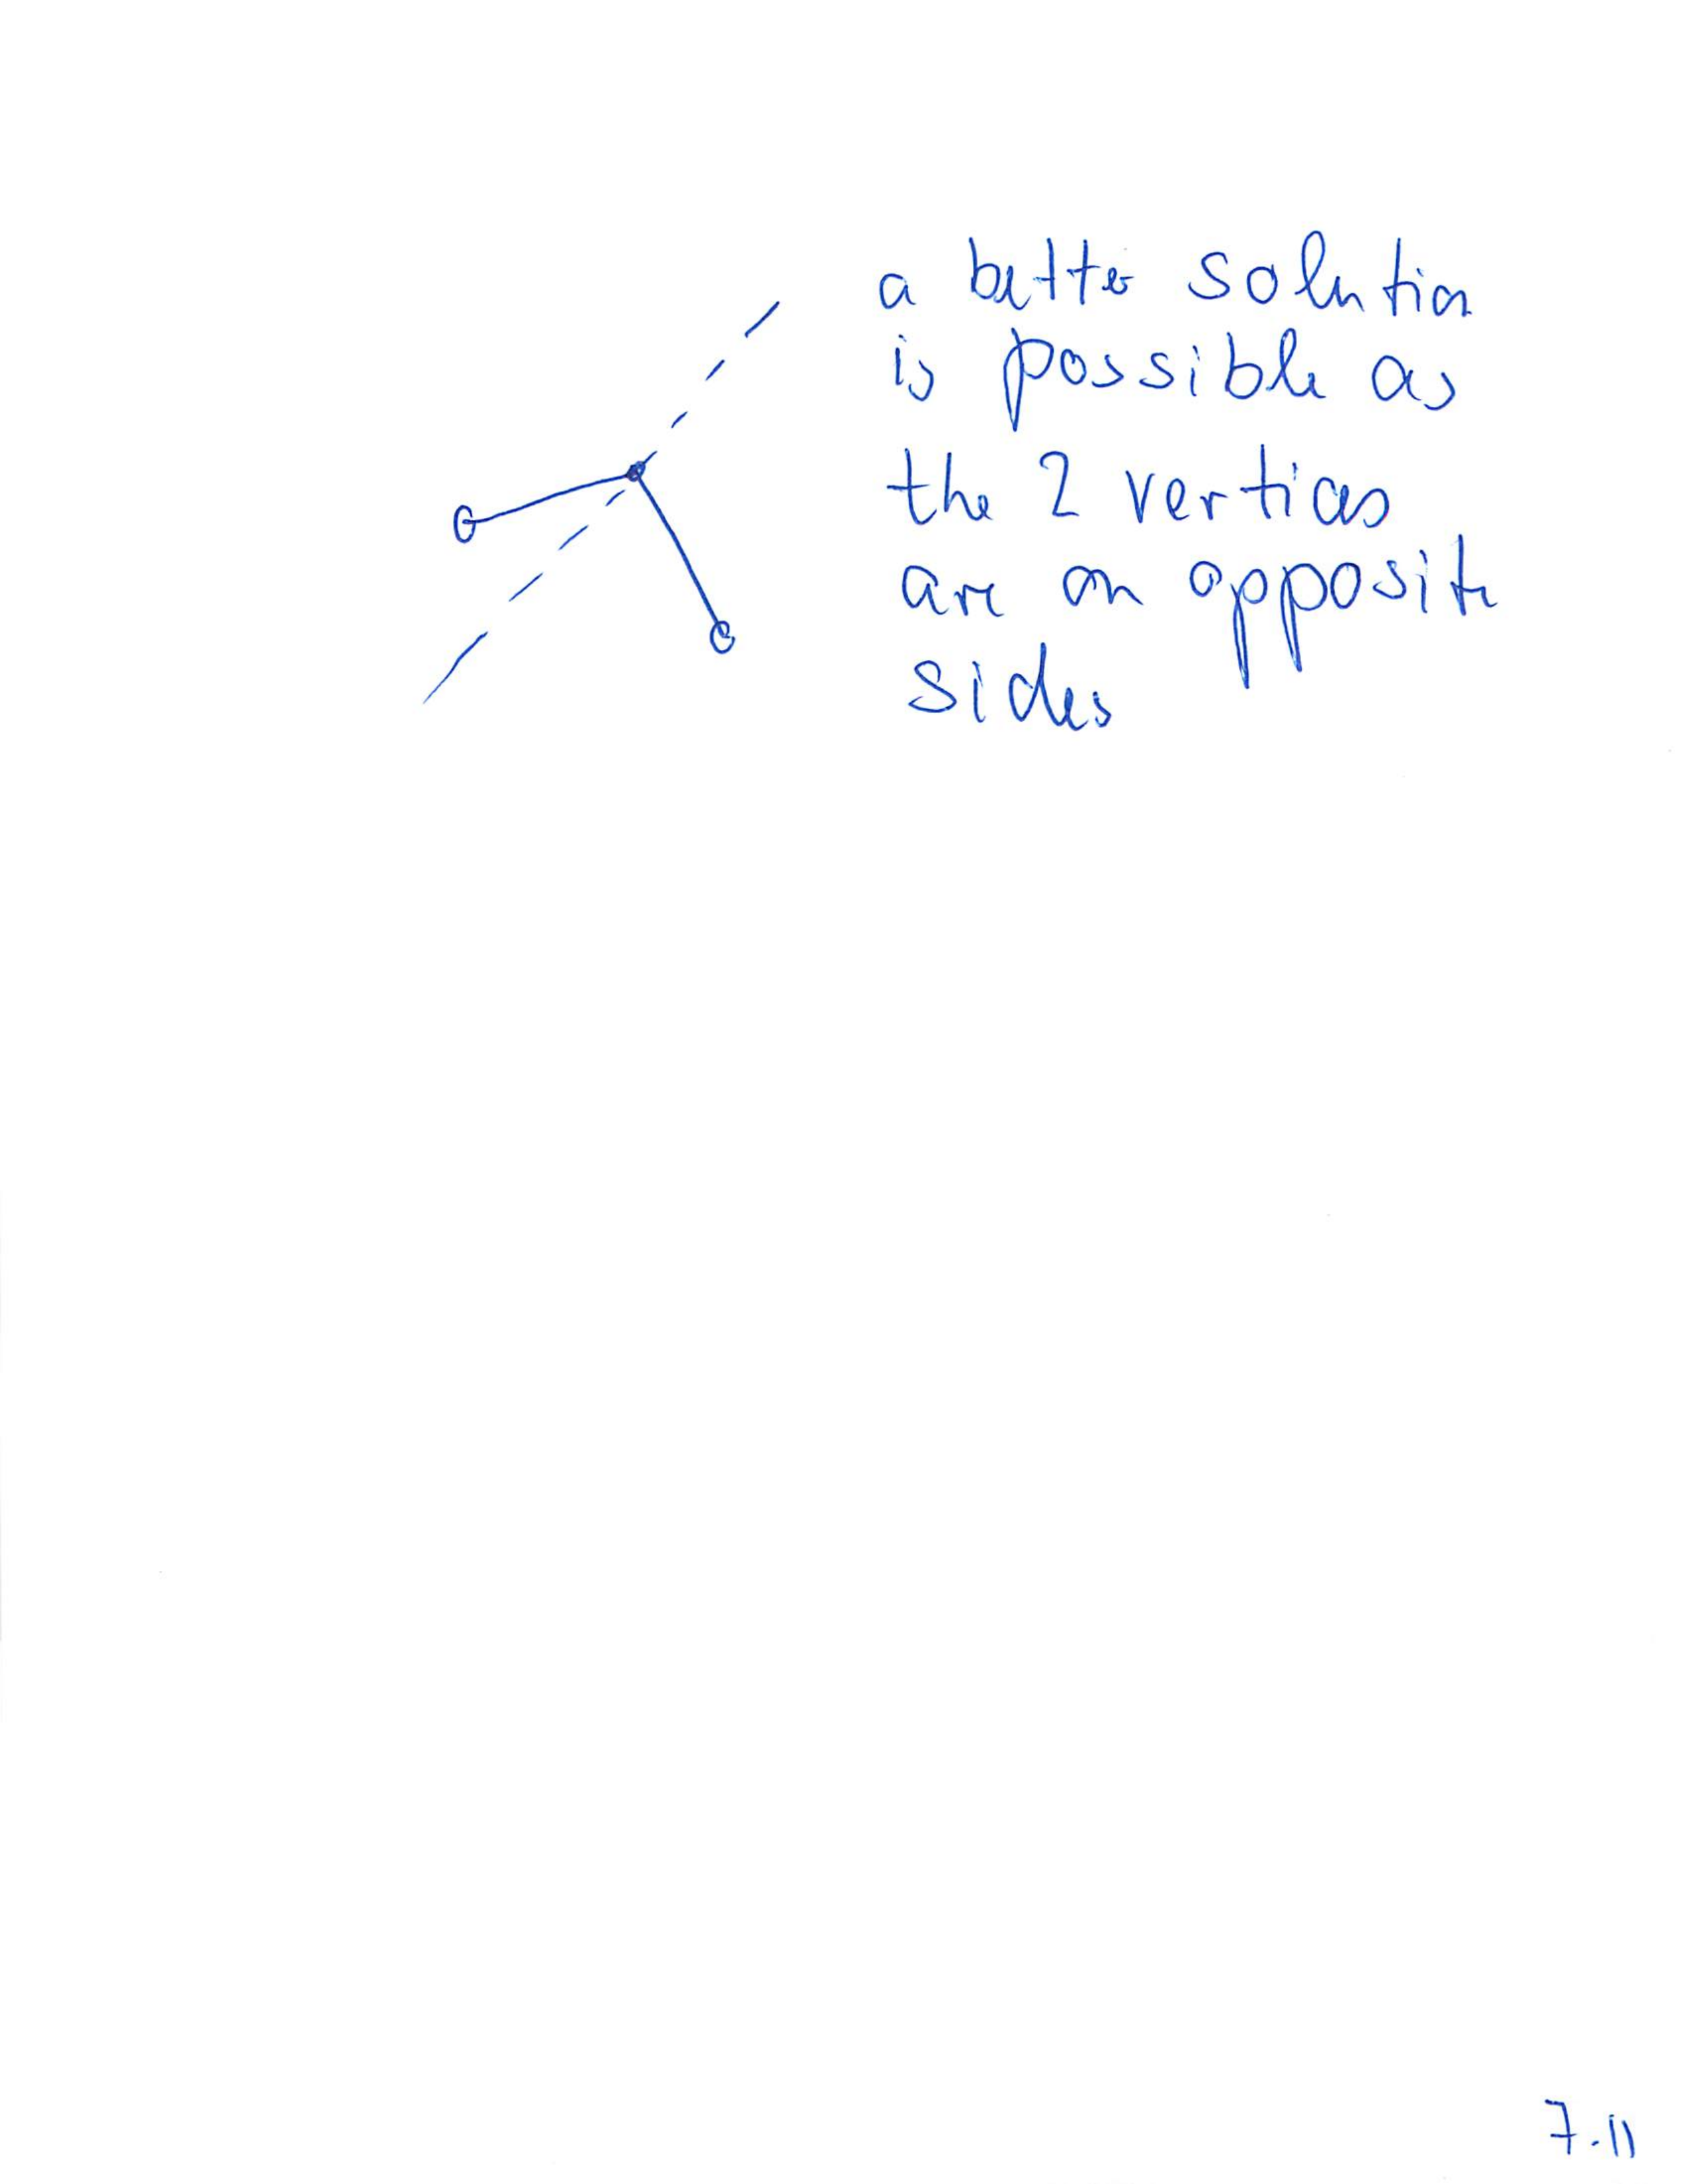 a better solution
is possible as
the 2 vertices
are on opposite
sides
7.11